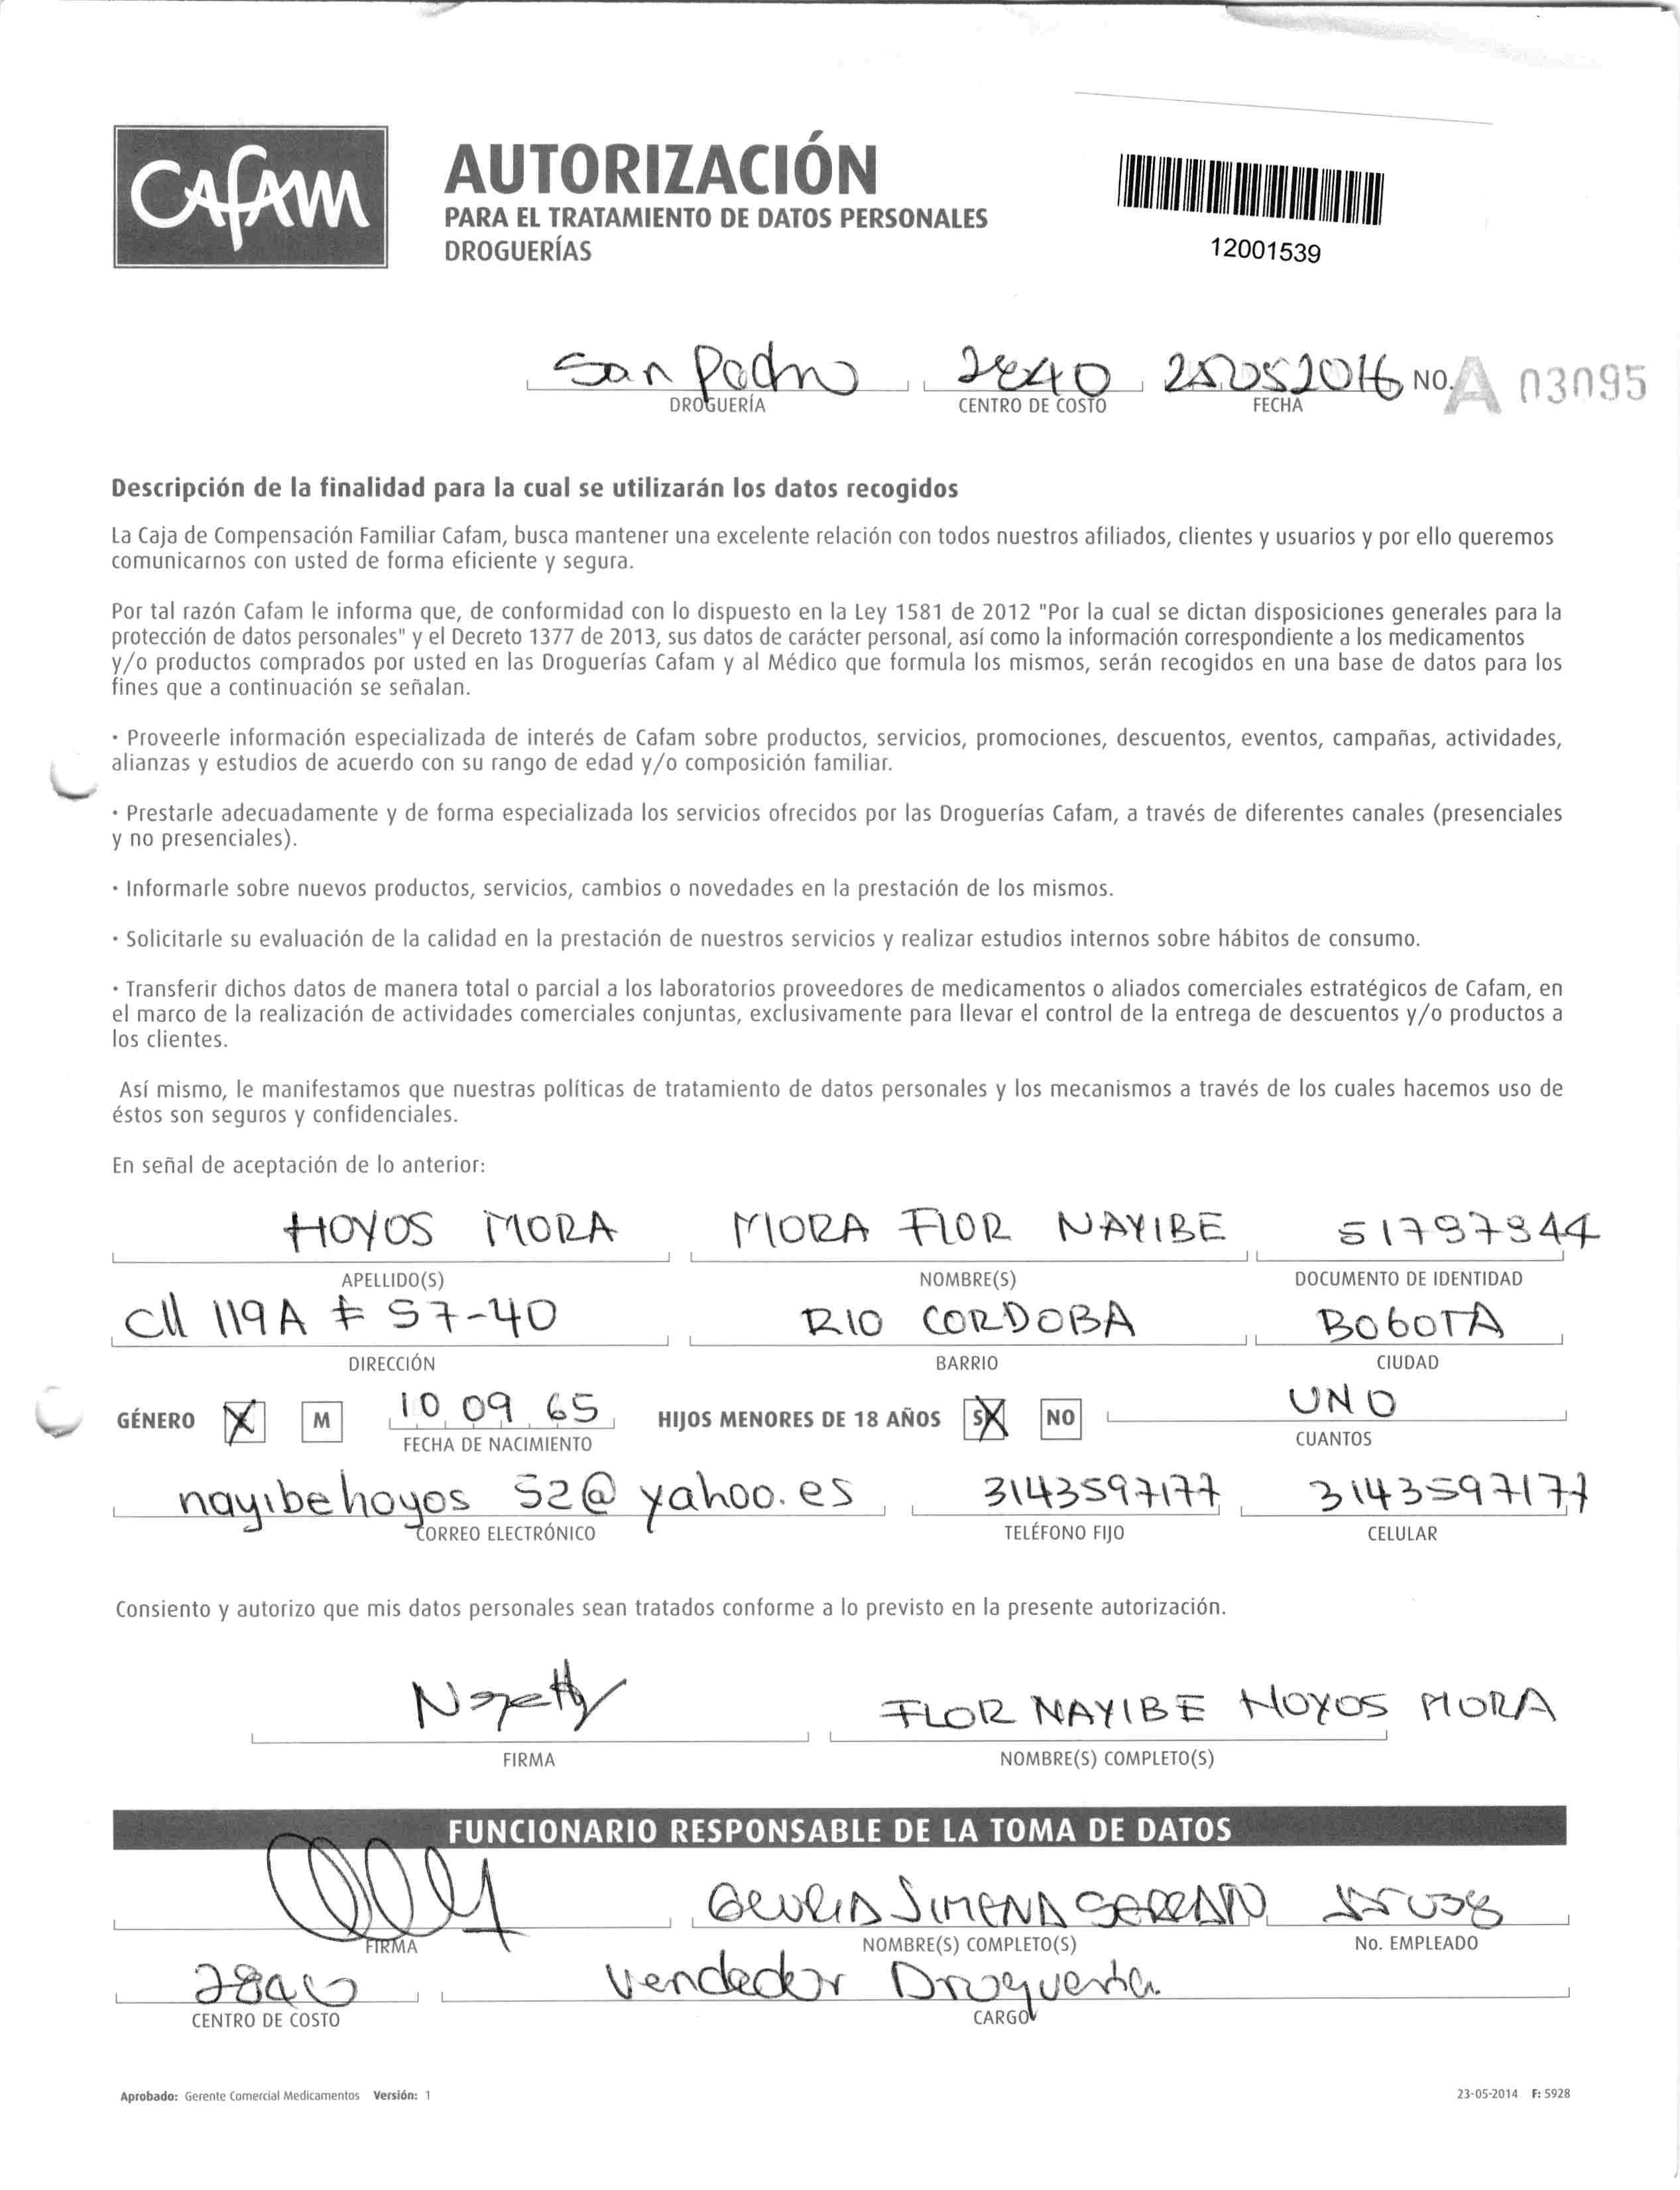 CAFAM
AUTORIZACIÓN
PARA EL TRATAMIENTO DE DATOS PERSONALES
DROGUERÍAS
12001539
San Pedro 2840 25052016 NO. A 03095
DROGUERÍA CENTRO DE COSTO FECHA
Descripción de la finalidad para la cual se utilizarán los datos recogidos
La Caja de Compensación Familiar Cafam, busca mantener una excelente relación con todos nuestros afiliados, clientes y usuarios y por ello queremos
comunicarnos con usted de forma eficiente y segura.
Por tal razón Cafam le informa que, de conformidad con lo dispuesto en la Ley 1581 de 2012 "Por la cual se dictan disposiciones generales para la
protección de datos personales" y el Decreto 1377 de 2013, sus datos de carácter personal, así como la información correspondiente a los medicamentos
y/o productos comprados por usted en las Droguerías Cafam y al Médico que formula los mismos, serán recogidos en una base de datos para los
fines que a continuación se señalan.
· Proveerle información especializada de interés de Cafam sobre productos, servicios, promociones, descuentos, eventos, campañas, actividades,
alianzas y estudios de acuerdo con su rango de edad y/o composición familiar.
· Prestarle adecuadamente y de forma especializada los servicios ofrecidos por las Droguerías Cafam, a través de diferentes canales (presenciales
y no presenciales).
· Informarle sobre nuevos productos, servicios, cambios o novedades en la prestación de los mismos.
· Solicitarle su evaluación de la calidad en la prestación de nuestros servicios y realizar estudios internos sobre hábitos de consumo.
· Transferir dichos datos de manera total o parcial a los laboratorios proveedores de medicamentos o aliados comerciales estratégicos de Cafam, en
el marco de la realización de actividades comerciales conjuntas, exclusivamente para llevar el control de la entrega de descuentos y/o productos a
los clientes.
Así mismo, le manifestamos que nuestras políticas de tratamiento de datos personales y los mecanismos a través de los cuales hacemos uso de
éstos son seguros y confidenciales.
En señal de aceptación de lo anterior:
HOYOS MORA MORA FLOR NAYIBE
APELLIDO(S) NOMBRE(S) DOCUMENTO DE IDENTIDAD
Cll 119A # 57-40 RIO CORDOBA BOGOTA
DIRECCIÓN BARRIO CIUDAD
GÉNERO X M 10 09 65 HIJOS MENORES DE 18 AÑOS SI X NO UNO
FECHA DE NACIMIENTO CUANTOS
nayibehoyos 52@yahoo.es 3143597177 3143597177
CORREO ELECTRÓNICO TELÉFONO FIJO CELULAR
Consiento y autorizo que mis datos personales sean tratados conforme a lo previsto en la presente autorización.
FLOR NAYIBE HOYOS MORA
FIRMA NOMBRE(S) COMPLETO(S)
FUNCIONARIO RESPONSABLE DE LA TOMA DE DATOS
FIRMA NOMBRE(S) COMPLETO(S) No. EMPLEADO
2840 Vendedor Drogueria
CENTRO DE COSTO CARGO
Aprobado: Gerente Comercial Medicamentos Versión: 1 23-05-2014 F: 5928